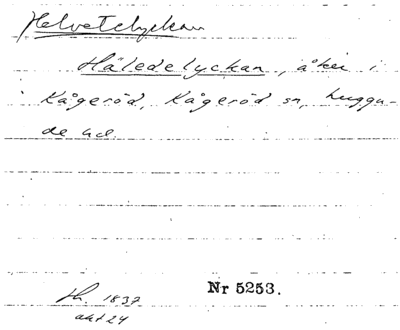 Helvetelyckan
Häledelyckan, åker i
Kågeröd, Kågeröd sn, Luggu-
de hd
Nr 5253.
sk. 1837
akt 24